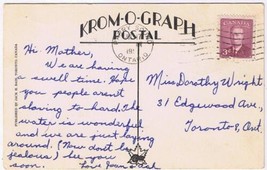 KROM-O-GRAPH
POSTAL
CANADA
ONTARIO
Hi Mother,
We are having
a swell time. Hope
you people aren't
slaving to hard. The
water is wonderful
and we are just laying
around. (Now don't be
jealous) See you
soon.
Love Joan
Miss Dorothy Wright
31 Edgewood Ave,
Toronto 8, Ont.